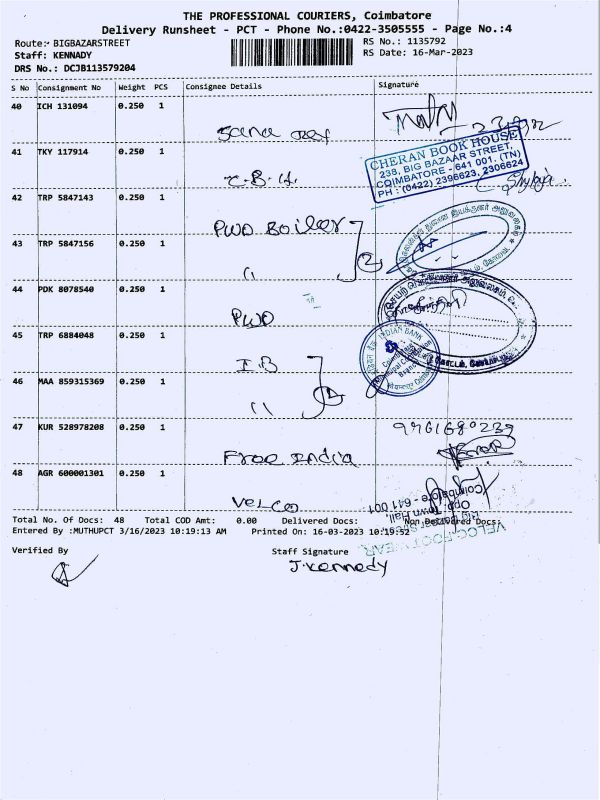 THE PROFESSIONAL COURIERS, Coimbatore
Delivery Runsheet - PCT - Phone No.:0422-3505555 - Page No.:4
Route:- BIGBAZARSTREET
RS No.: 1135792
Staff: KENNADY
RS Date: 16-Mar-2023
DRS No.: DCJB113579204
S No Consignment No Weight PCS Consignee Details Signature
40 ICH 131094 0.250 1
41 TKY 117914 0.250 1
C.B.H.
CHERAN BOOK HOUSE
238, BIG BAZAAR STREET,
COIMBATORE - 641 001. (TN)
PH : (0422) 2396623, 2306624
42 TRP 5847143 0.250 1
PWD Boiler
43 TRP 5847156 0.250 1
" 2
44 PDK 8078540 0.250 1
PWD
45 TRP 6884048 0.250 1
I.B
INDIAN BANK
46 MAA 859315369 0.250 1
" 2
47 KUR 528978208 0.250 1
Free India
48 AGR 600001301 0.250 1
Velco
VELCO FOOT WEAR
Opp Town Hall,
Coimbatore - 641 001
Total No. Of Docs: 48 Total COD Amt: 0.00 Delivered Docs: Non Delivered Docs:
Entered By :MUTHUPCT 3/16/2023 10:19:13 AM Printed On: 16-03-2023 10:19:52
Verified By Staff Signature
J.Kennedy